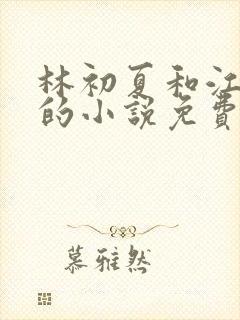 林初夏和江
的小說免費
慕雅然